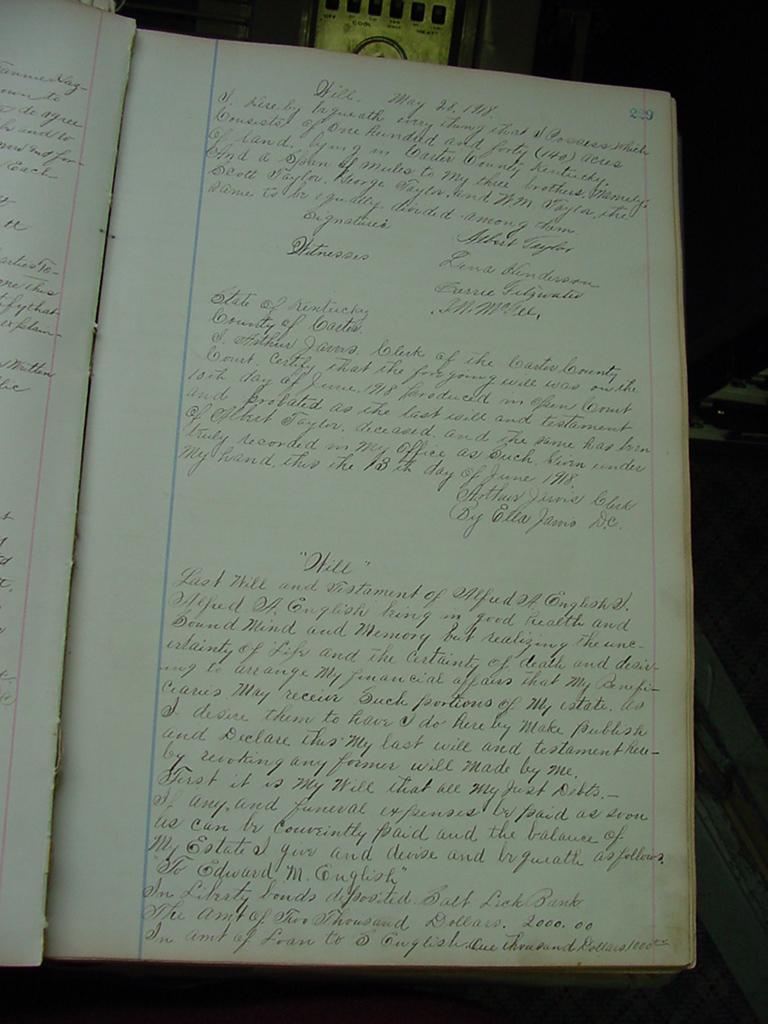 Fannie Kay-
own to
do agree
and to
Each
arties To-
me this
tify that
explain-
Written
lic
OFF
COOL
HEAT
229
Will. May 28, 1918.
I hereby bequeath every thing that I Possess which
Consists of One hundred and forty (140) acres
of land, lying in Carter County Kentucky.
And a Span of mules to My three brothers, Namely;
Scott Taylor, George Taylor, and WM Taylor, the
same to be equally divided among them.
Signature: Albert Taylor
Witnesses Lena Henderson
Fitzwater
McGee,
State of Kentucky
County of Carter.
I, Arthur Jarvis, Clerk of the Carter County
Court, Certify that the foregoing will was on the
10th day of June, 1918 produced in Open Court
and probated as the last will and testament
of Albert Taylor, deceased, and the same has been
truly recorded in My Office as Such. Given under
My hand, this the 13th day of June 1918.
Arthur Jarvis Clerk
By Ella Jarvis D.C.
"Will"
Last Will and Testament of Alfred A. English I.
Alfred A. English being in good health and
Sound Mind and Memory but realizing the unc-
ertainty of Life and the certainty of death and desir-
ing to arrange My financial affairs that My Benefi-
ciaries May receive Such portions of My estate, as
I desire them to have I do hereby Make publish
and Declare this My last will and testament here-
by revoking any former will made by me.
First it is My Will that all My Just Debts.-
If any, and funeral expenses be paid as soon
as can be conveintly paid and the balance of
My Estate I give and devise and bequeath as follows.
"To Edward M. English"
In Liberty bonds deposited Salt Lick Bank
The amt of Two Thousand Dollars. 2000.00
In amt of Loan to S English One thousand Dollars 1000